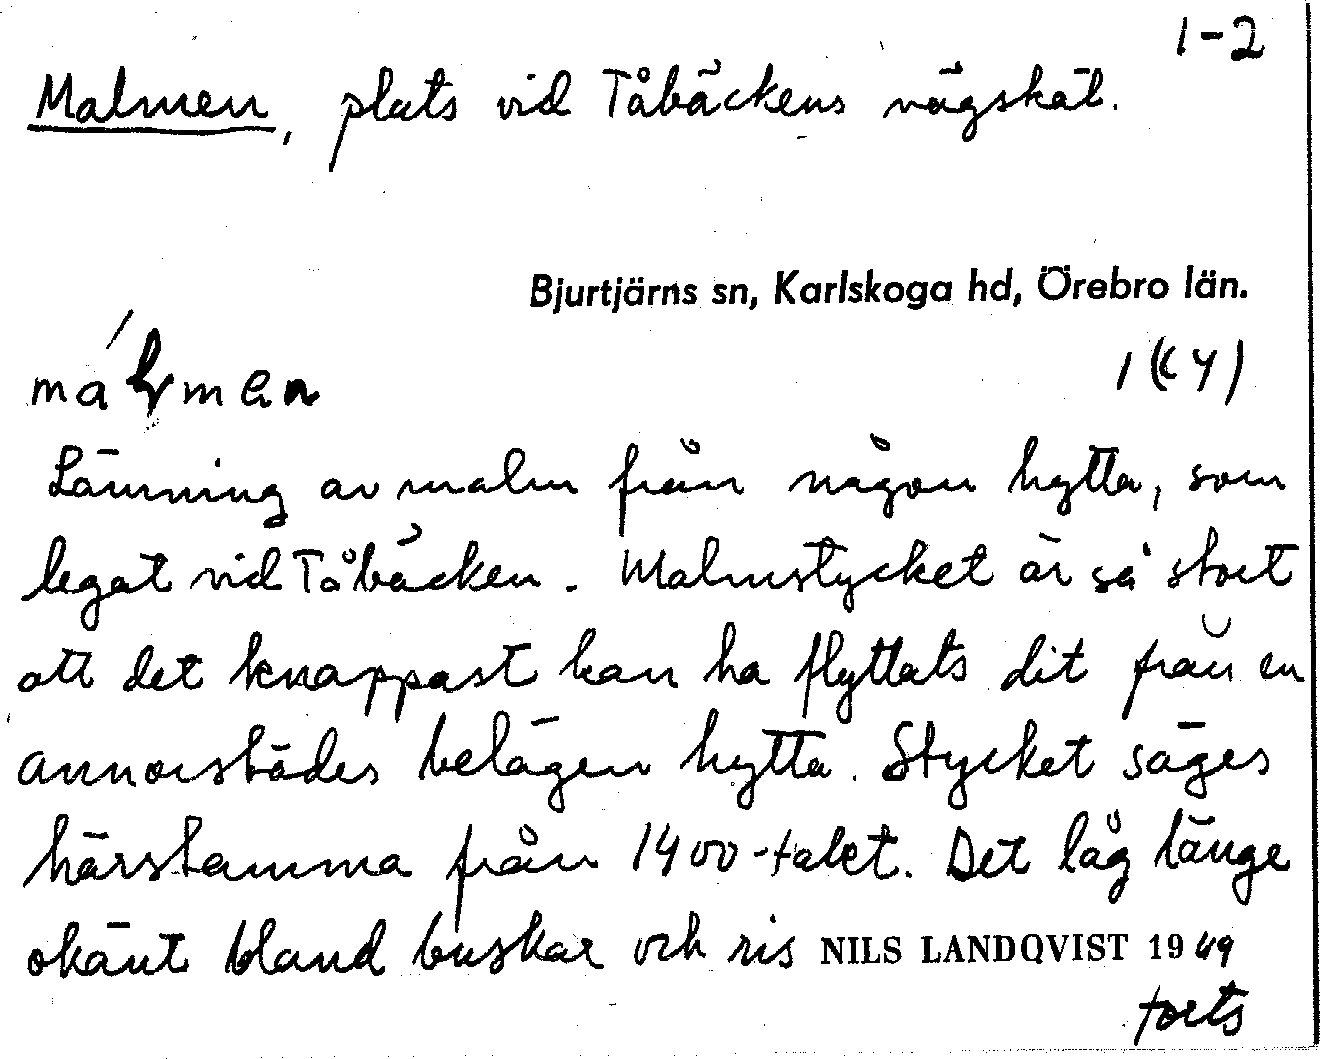 1-2
Malmen, plats vid Tåbäckens vägskäl.
Bjurtjärns sn, Karlskoga hd, Örebro län.
1 (4)
Lämning av malm från någon hytta, som
legat vid Tåbäcken. Malmstycket är så stort
att det knappast kan ha flyttats dit från en
annorstädes belägen hytta. Stycket säges
härstamma från 1400-talet. Det låg länge
okänt bland buskar och ris NILS LANDQVIST 1949
forts